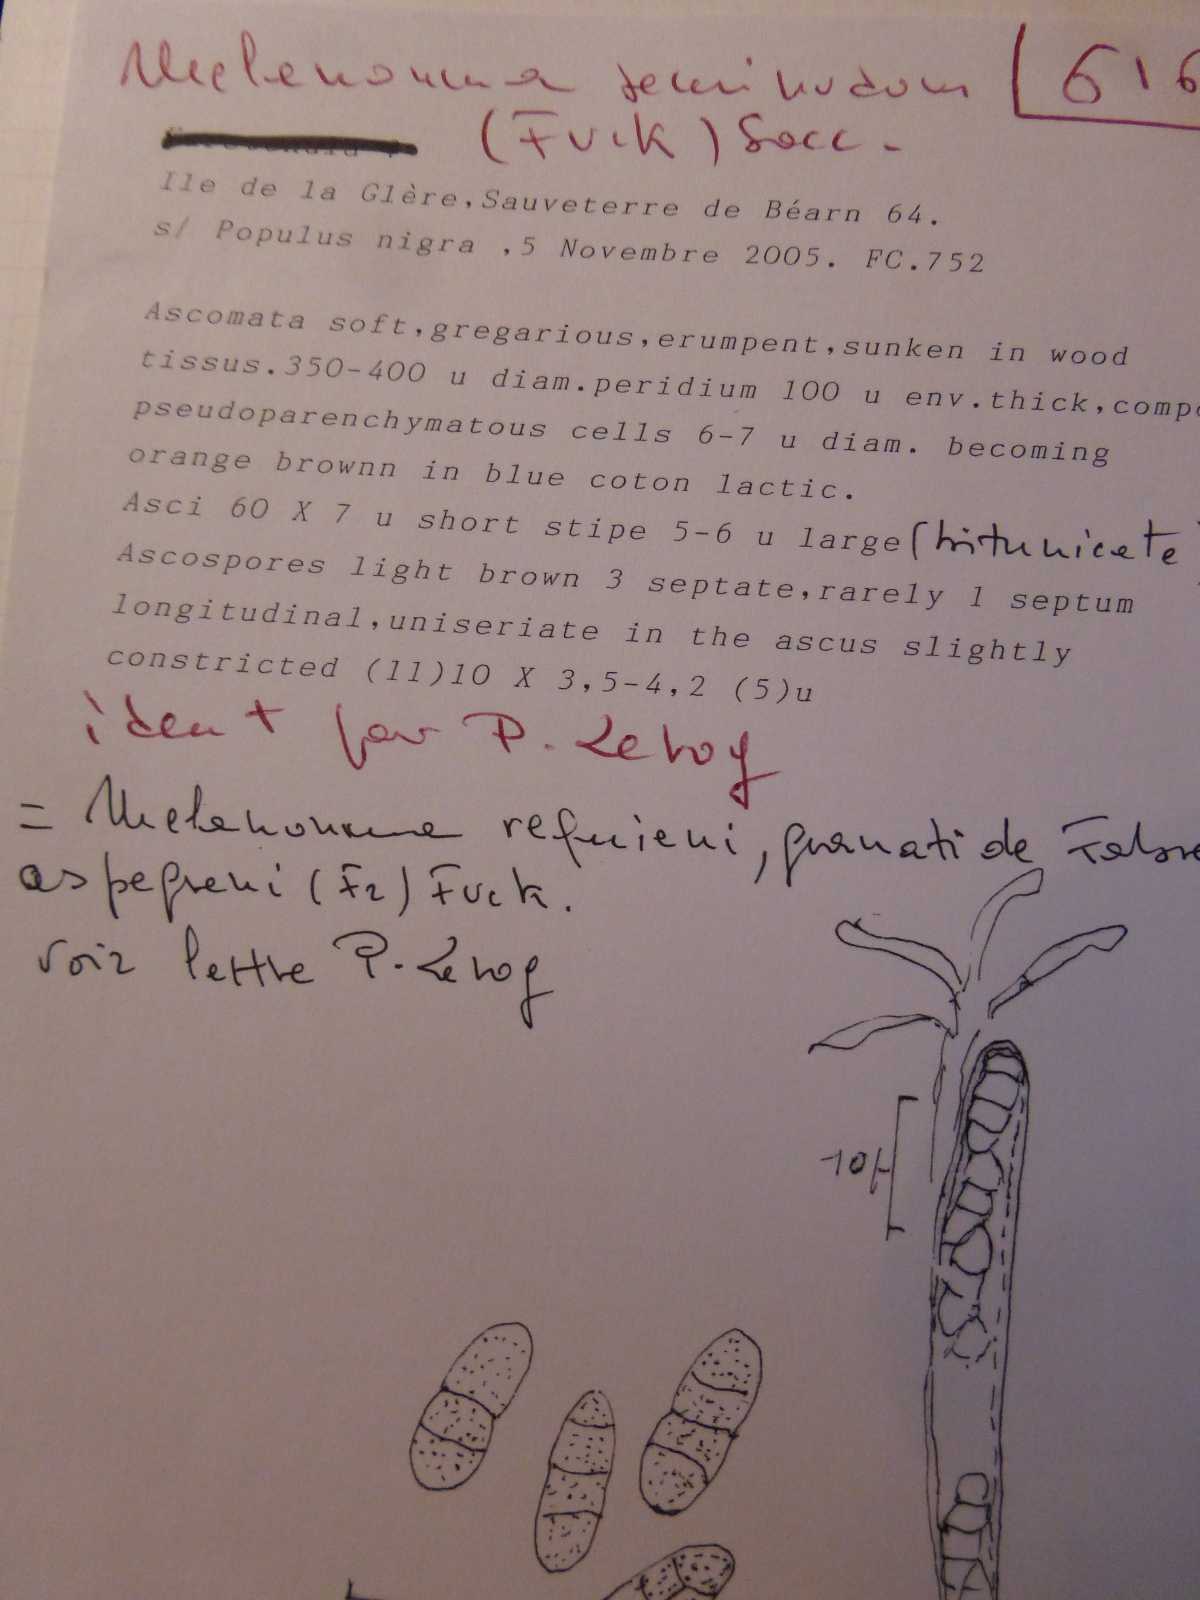 Melanomma seminudum 616
(Fuck) Sacc.
Ile de la Glère,Sauveterre de Béarn 64.
s/ Populus nigra ,5 Novembre 2005. FC.752
Ascomata soft,gregarious,erumpent,sunken in wood
tissus.350-400 u diam.peridium 100 u env.thick,compo
pseudoparenchymatous cells 6-7 u diam. becoming
orange brownn in blue coton lactic.
Asci 60 X 7 u short stipe 5-6 u large(bitunicate
Ascospores light brown 3 septate,rarely 1 septum
longitudinal,uniseriate in the ascus slightly
constricted (11)10 X 3,5-4,2 (5)u
ident par P. Leroy
= Melanomma requieni, granati de Fabre
aspegreni (Fr) Fuck.
voir lettre P. Leroy
10µ